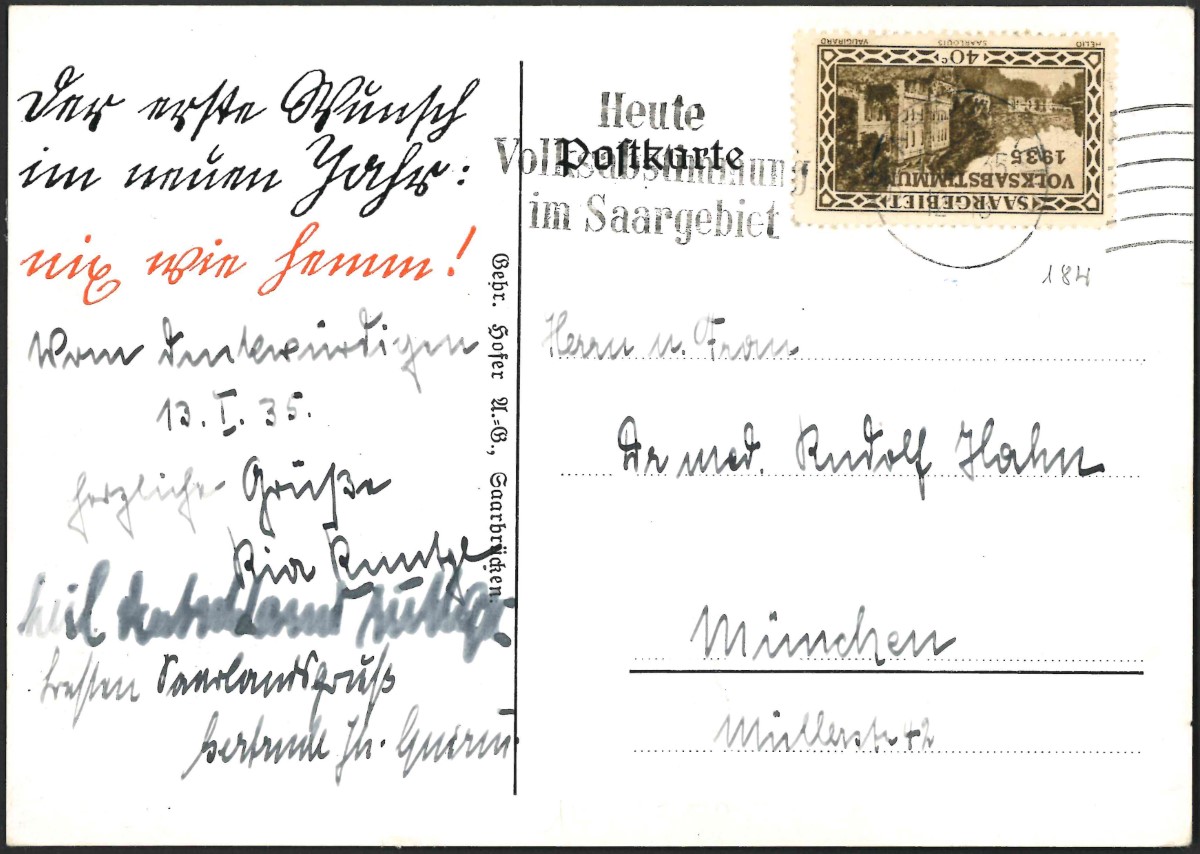 Der erste Wunsch
im neuen Jahr:
nix wie hemm!
Vom denkwürdigen
13. I. 35.
herzliche Grüße
Ria
heil
besten Saarlandsgruß
Gertrude
Gebr. Hofer A.=G., Saarbrücken.
Heute
Volksabstimmung
im Saargebiet
Postkarte
HELIO SAARLOUIS VAUGIRARD
40c
1935
VOLKSABSTIMMUNG
SAARGEBIET
184
Herrn u. Frau
Dr med. Rudolf Hahn
München
Müllerstr 42